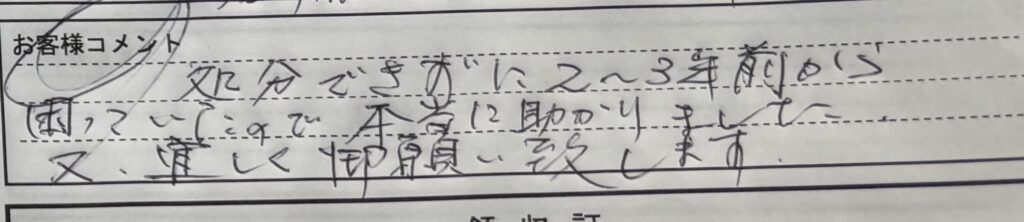 お客様コメント
処分できずに2〜3年前から
困っていたので本当に助かりました.
又、宜しく御願い致します.
領収証